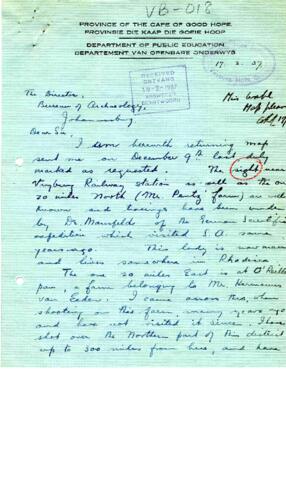 VB-018
PROVINCE OF THE CAPE OF GOOD HOPE.
PROVINSIE DIE KAAP DIE GOEIE HOOP
DEPARTMENT OF PUBLIC EDUCATION
DEPARTEMENT VAN OPENBARE ONDERWYS
17.2.37
RECEIVED
ONTVANG
The Director,
Bureau of Archaeology,
Johannesburg.
Dear Sir,
I am herewith returning map
sent me on December 9th last duly
marked as requested. The sight near
Vryburg Railway Station as well as the one
20 miles North (Mr. farm) are well
known and have been made
by Dr. of the German Scientific
expedition which visited S.A. some
years ago. This lady is now married
and lives somewhere in Rhodesia.
The one 20 miles East is at O'Reilly's
pan, a farm belonging to Mr. Hermanus
van Eeden. I came across this, when
shooting on this farm, many years ago
and have not visited it since. I have
shot over the Northern part of this district
up to 300 miles from here, and have